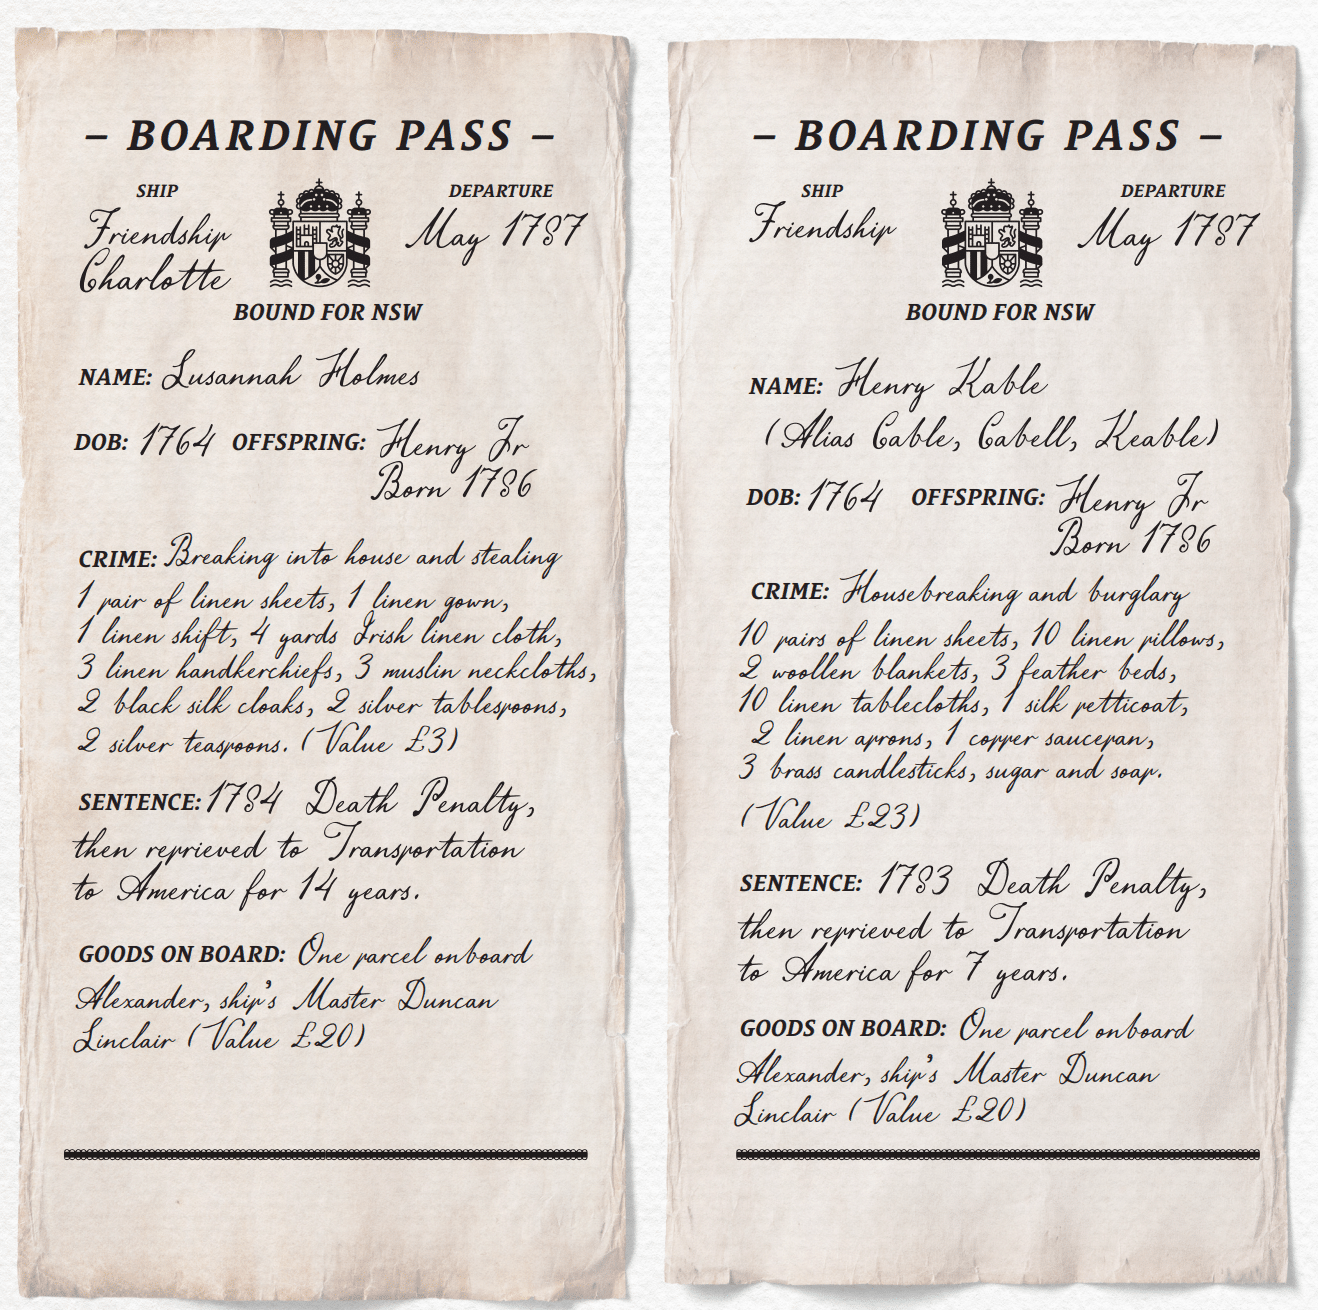 – BOARDING PASS –
SHIP
DEPARTURE
Friendship
Charlotte
May 1787
BOUND FOR NSW
NAME: Susannah Holmes
DOB: 1764 OFFSPRING: Henry Jr
Born 1786
CRIME: Breaking into house and stealing
1 pair of linen sheets, 1 linen gown,
1 linen shift, 4 yards Irish linen cloth,
3 linen handkerchiefs, 3 muslin neckcloths,
2 black silk cloaks, 2 silver tablespoons,
2 silver teaspoons. (Value £3)
SENTENCE: 1784 Death Penalty,
then reprieved to Transportation
to America for 14 years.
GOODS ON BOARD: One parcel onboard
Alexander, ship's Master Duncan
Sinclair (Value £20)
– BOARDING PASS –
SHIP
DEPARTURE
Friendship
May 1787
BOUND FOR NSW
NAME: Henry Kable
(Alias Cable, Cabell, Keable)
DOB: 1764 OFFSPRING: Henry Jr
Born 1786
CRIME: Housebreaking and burglary
10 pairs of linen sheets, 10 linen pillows,
2 woollen blankets, 3 feather beds,
10 linen tablecloths, 1 silk petticoat,
2 linen aprons, 1 copper saucepan,
3 brass candlesticks, sugar and soap.
(Value £23)
SENTENCE: 1783 Death Penalty,
then reprieved to Transportation
to America for 7 years.
GOODS ON BOARD: One parcel onboard
Alexander, ship's Master Duncan
Sinclair (Value £20)